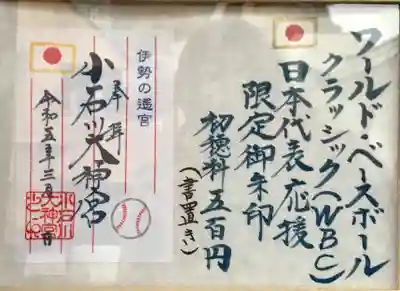 ワールド・ベースボール
クラシック(WBC)
日本代表応援
限定御朱印
初穂料五百円
(書置き)
伊勢の遙宮
奉拝
小石川大神宮
令和五年三月 日